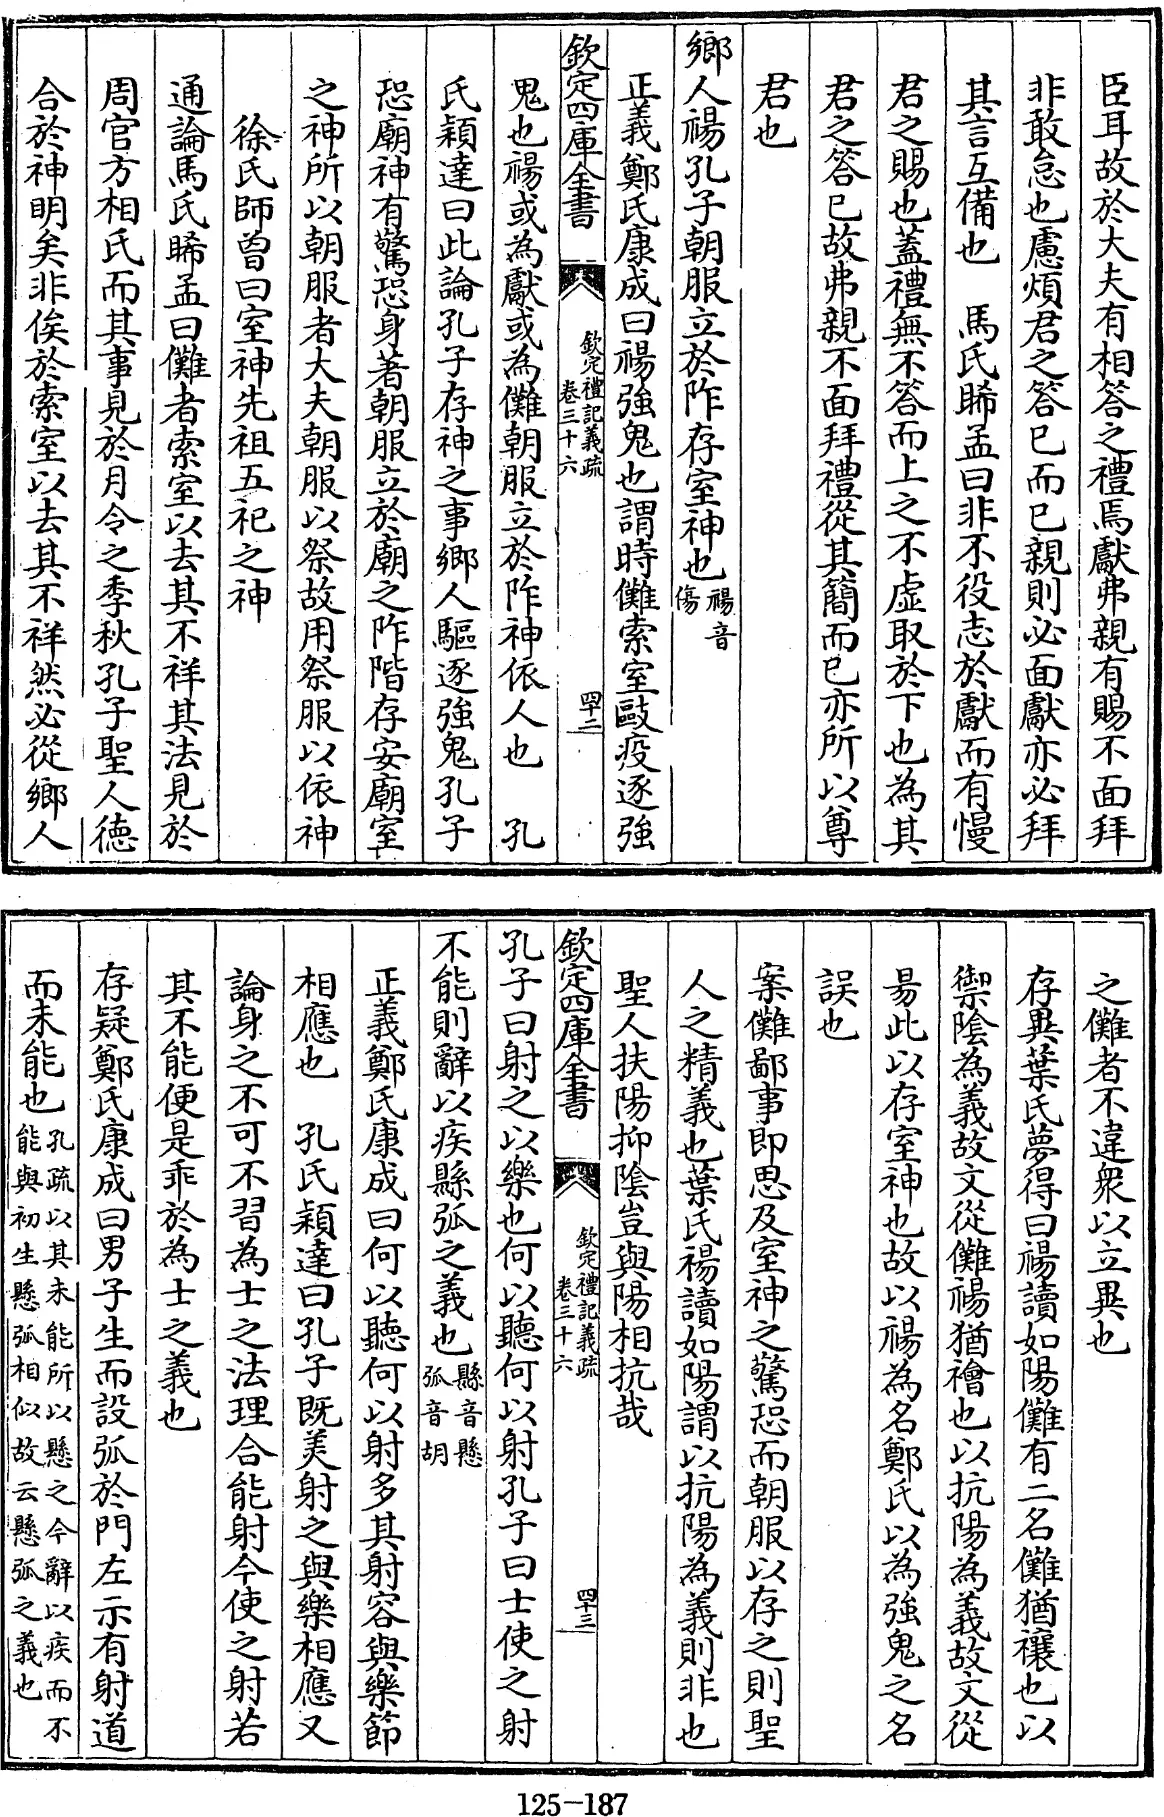 臣耳故於大夫有相答之禮焉獻弗親有賜不面拜
非敢怠也慮煩君之答已而已親則必面獻亦必拜
其言互備也　馬氏睎孟曰非不役志於獻而有慢
君之賜也蓋禮無不答而上之不虛取於下也為其
君之答已故弗親不面拜禮從其簡而已亦所以尊
君也
鄉人禓孔子朝服立於阼存室神也禓音傷
正義鄭氏康成曰禓強鬼也謂時儺索室毆疫逐強
欽定四庫全書　欽定禮記義疏卷三十六　四十二
鬼也禓或為獻或為儺朝服立於阼神依人也　孔
氏穎達曰此論孔子存神之事鄉人驅逐強鬼孔子
恐廟神有驚恐身著朝服立於廟之阼階存安廟室
之神所以朝服者大夫朝服以祭故用祭服以依神
徐氏師曾曰室神先祖五祀之神
通論馬氏睎孟曰儺者索室以去其不祥其法見於
周官方相氏而其事見於月令之季秋孔子聖人德
合於神明矣非俟於索室以去其不祥然必從鄉人
之儺者不違衆以立異也
存異葉氏夢得曰禓讀如陽儺有二名儺猶禳也以
禦陰為義故文從儺禓猶禬也以抗陽為義故文從
昜此以存室神也故以禓為名鄭氏以為強鬼之名
誤也
案儺鄙事即思及室神之驚恐而朝服以存之則聖
人之精義也葉氏禓讀如陽謂以抗陽為義則非也
聖人扶陽抑陰豈與陽相抗哉
欽定四庫全書　欽定禮記義疏卷三十六　四十三
孔子曰射之以樂也何以聽何以射孔子曰士使之射
不能則辭以疾縣弧之義也縣音懸弧音胡
正義鄭氏康成曰何以聽何以射多其射容與樂節
相應也　孔氏穎達曰孔子既美射之與樂相應又
論身之不可不習為士之法理合能射今使之射若
其不能便是乖於為士之義也
存疑鄭氏康成曰男子生而設弧於門左示有射道
而未能也孔疏以其未能所以懸之今辭以疾而不能與初生懸弧相似故云懸弧之義也
125-187